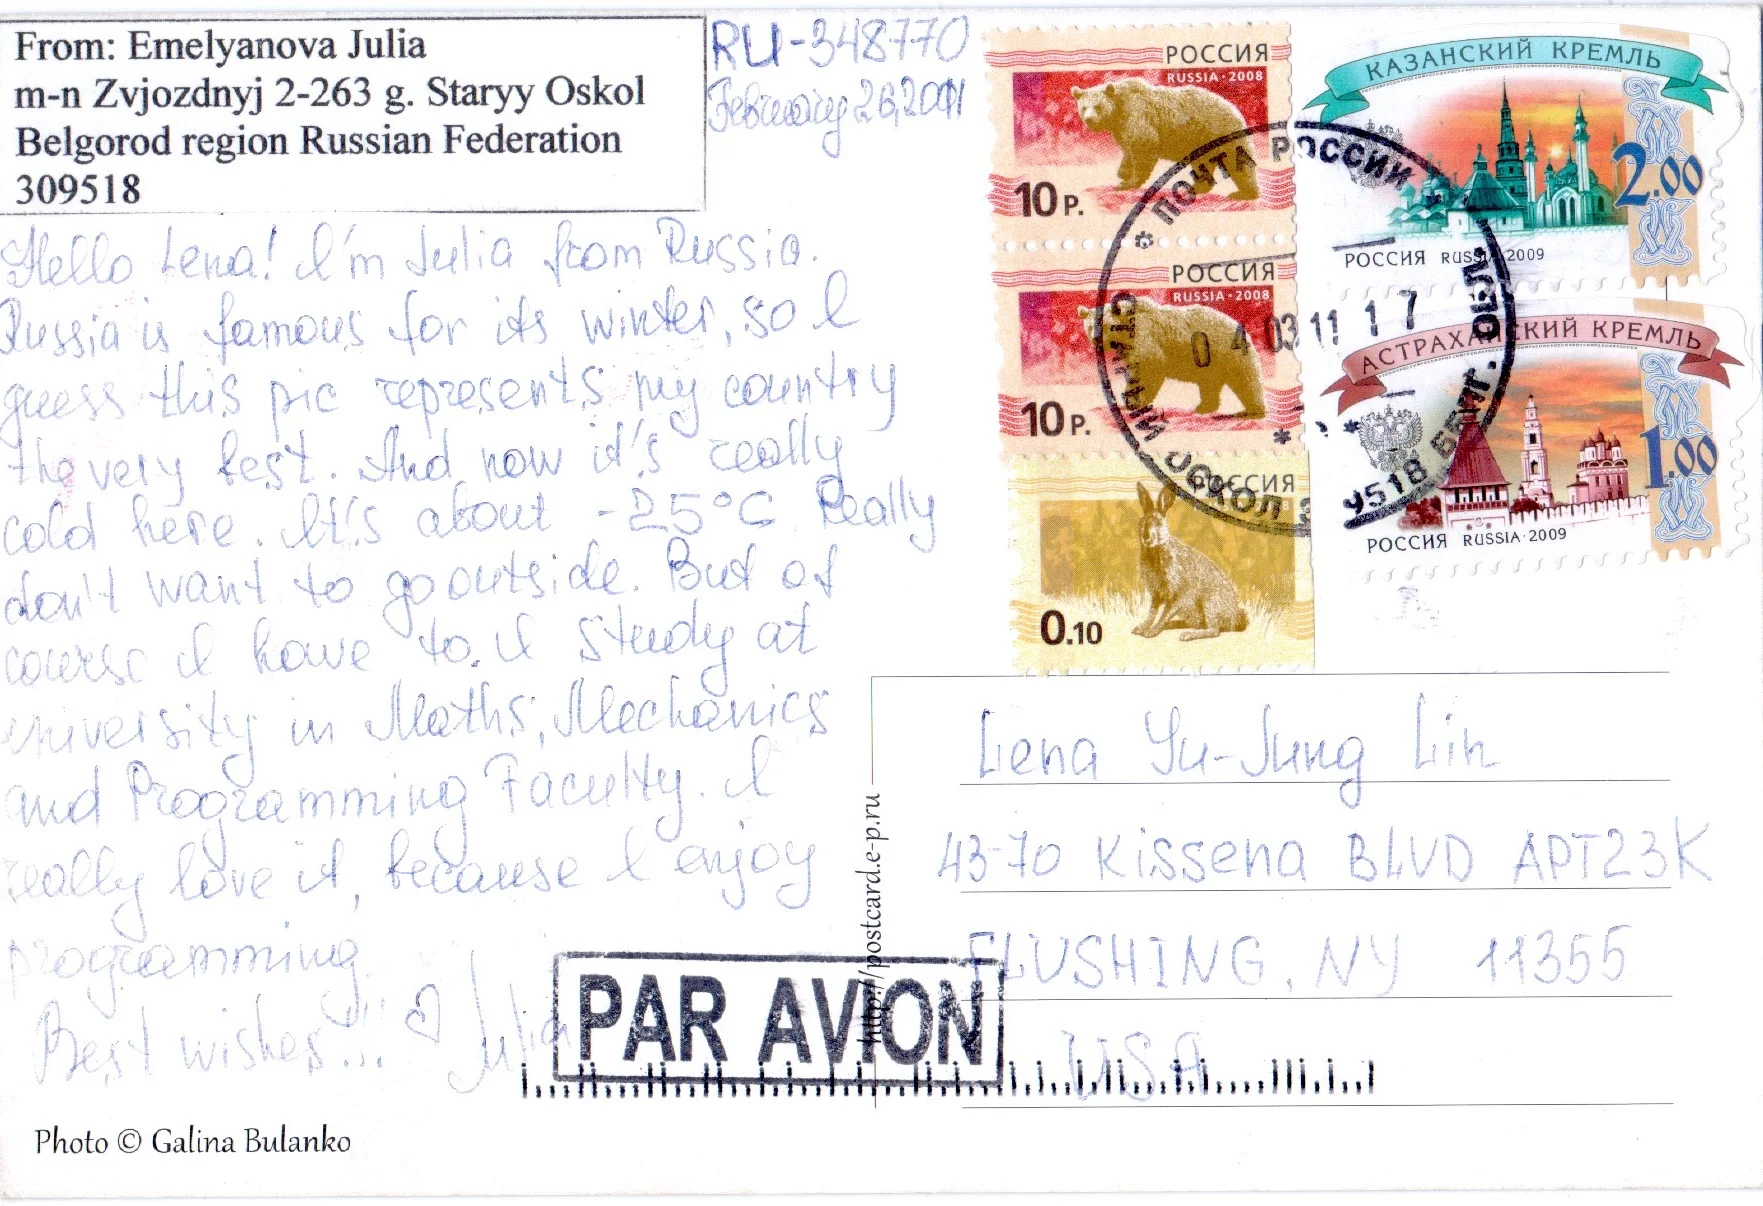 From: Emelyanova Julia
m-n Zvjozdnyj 2-263 g. Staryy Oskol
Belgorod region Russian Federation
309518
RU-348770
February 26, 2011
Hello Lena! I'm Julia from Russia.
Russia is famous for its winter, so I
guess this pic represents my country
the very best. And now it's really
cold here. It's about -25°C Really
don't want to go outside. But of
course I have to. I study at
university in Maths, Mechanics
and Programming Faculty. I
really love it, because I enjoy
programming
Best wishes... ♡ Julia
Photo © Galina Bulanko
РОССИЯ
RUSSIA·2008
10 Р.
РОССИЯ
RUSSIA·2008
10 Р.
РОССИЯ
0.10
КАЗАНСКИЙ КРЕМЛЬ
2.00
РОССИЯ RUSSIA·2009
АСТРАХАНСКИЙ КРЕМЛЬ
1.00
РОССИЯ RUSSIA·2009
* ПОЧТА РОССИИ
СТАРЫЙ ОСКОЛ
ОБЛ.
04 03 11 17
Lena Yu-Jung Lin
43-70 Kissena BLVD APT23K
FLUSHING, NY 11355
USA
http://postcard.e-p.ru
PAR AVION